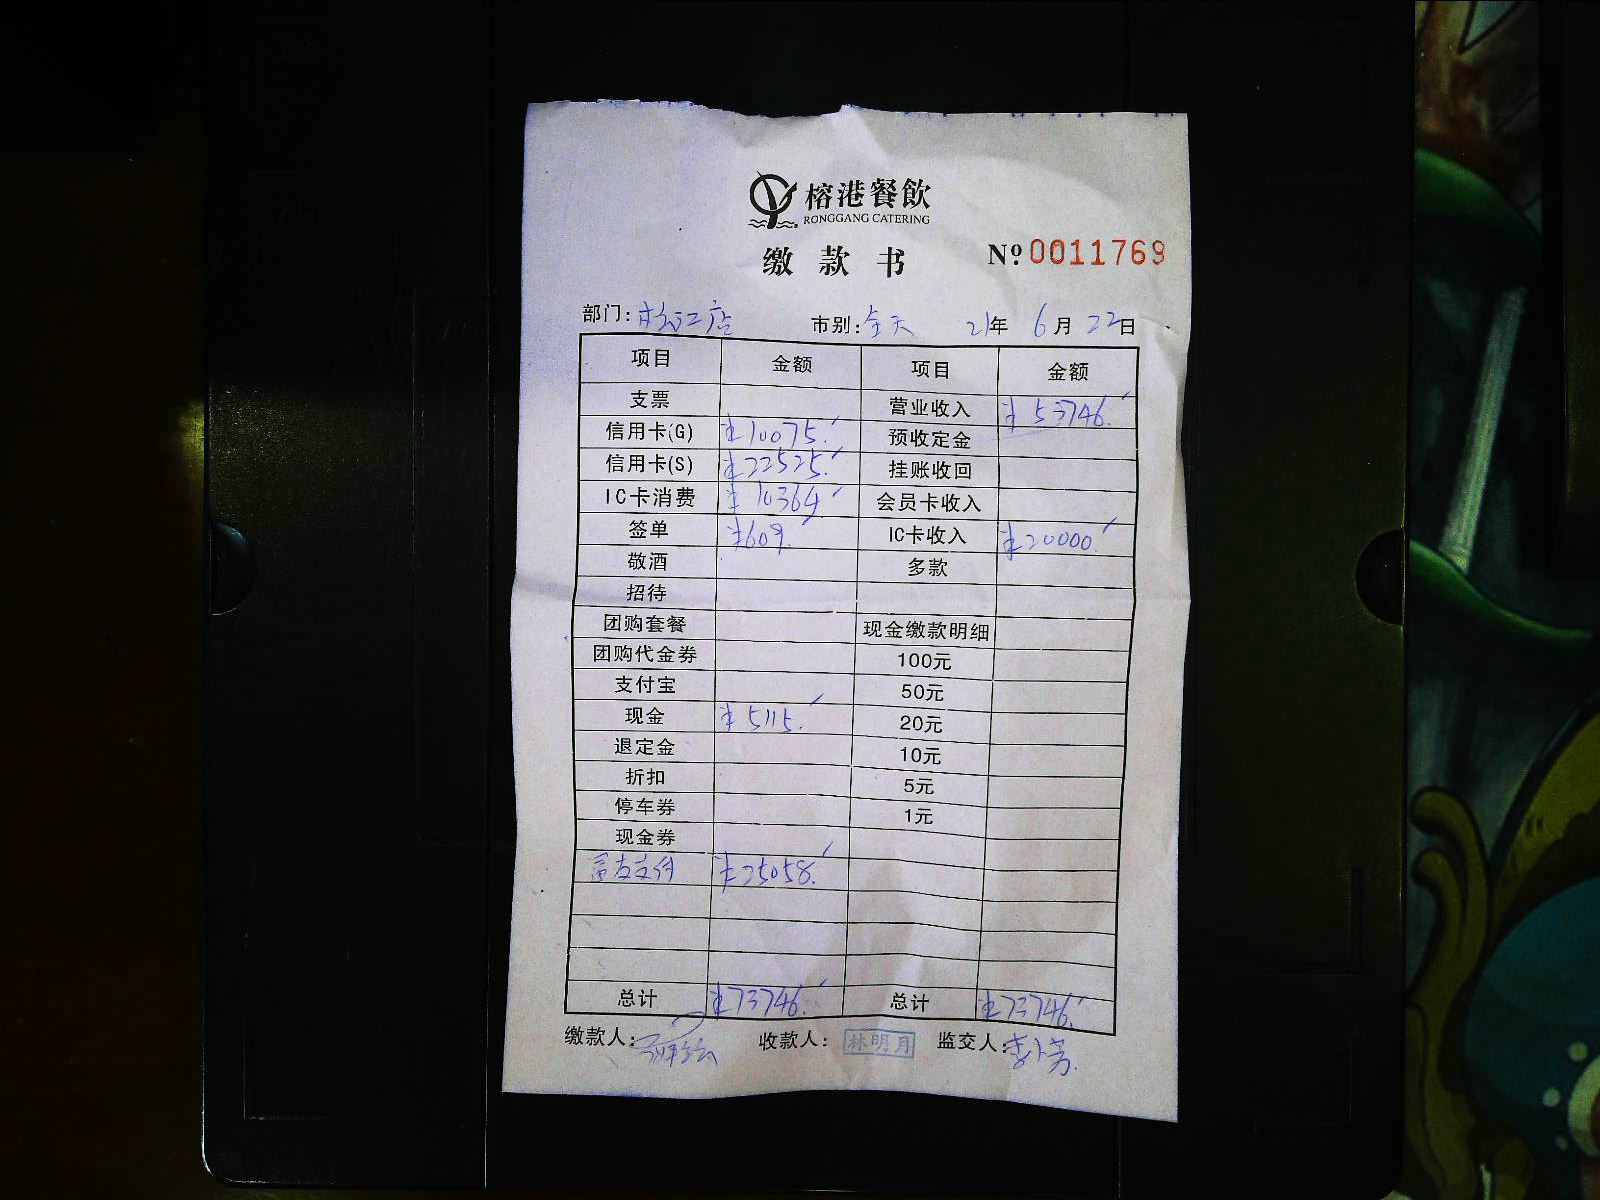 榕港餐飲
RONGGANG CATERING
缴款书 Nº 0011769
部门: 松江店 市别: 全天 21年 6月 22日
项目 金额 项目 金额
支票 营业收入 ¥53746.
信用卡(G) ¥10075. 预收定金
信用卡(S) ¥22525. 挂账收回
IC卡消费 ¥10364 会员卡收入
签单 ¥609. IC卡收入 ¥20000.
敬酒 多款
招待
团购套餐 现金缴款明细
团购代金券 100元
支付宝 50元
现金 ¥5115. 20元
退定金 10元
折扣 5元
停车券 1元
现金券
富友支付 ¥25058.
总计 ¥73746. 总计 ¥73746.
缴款人: 收款人: 林明月 监交人: